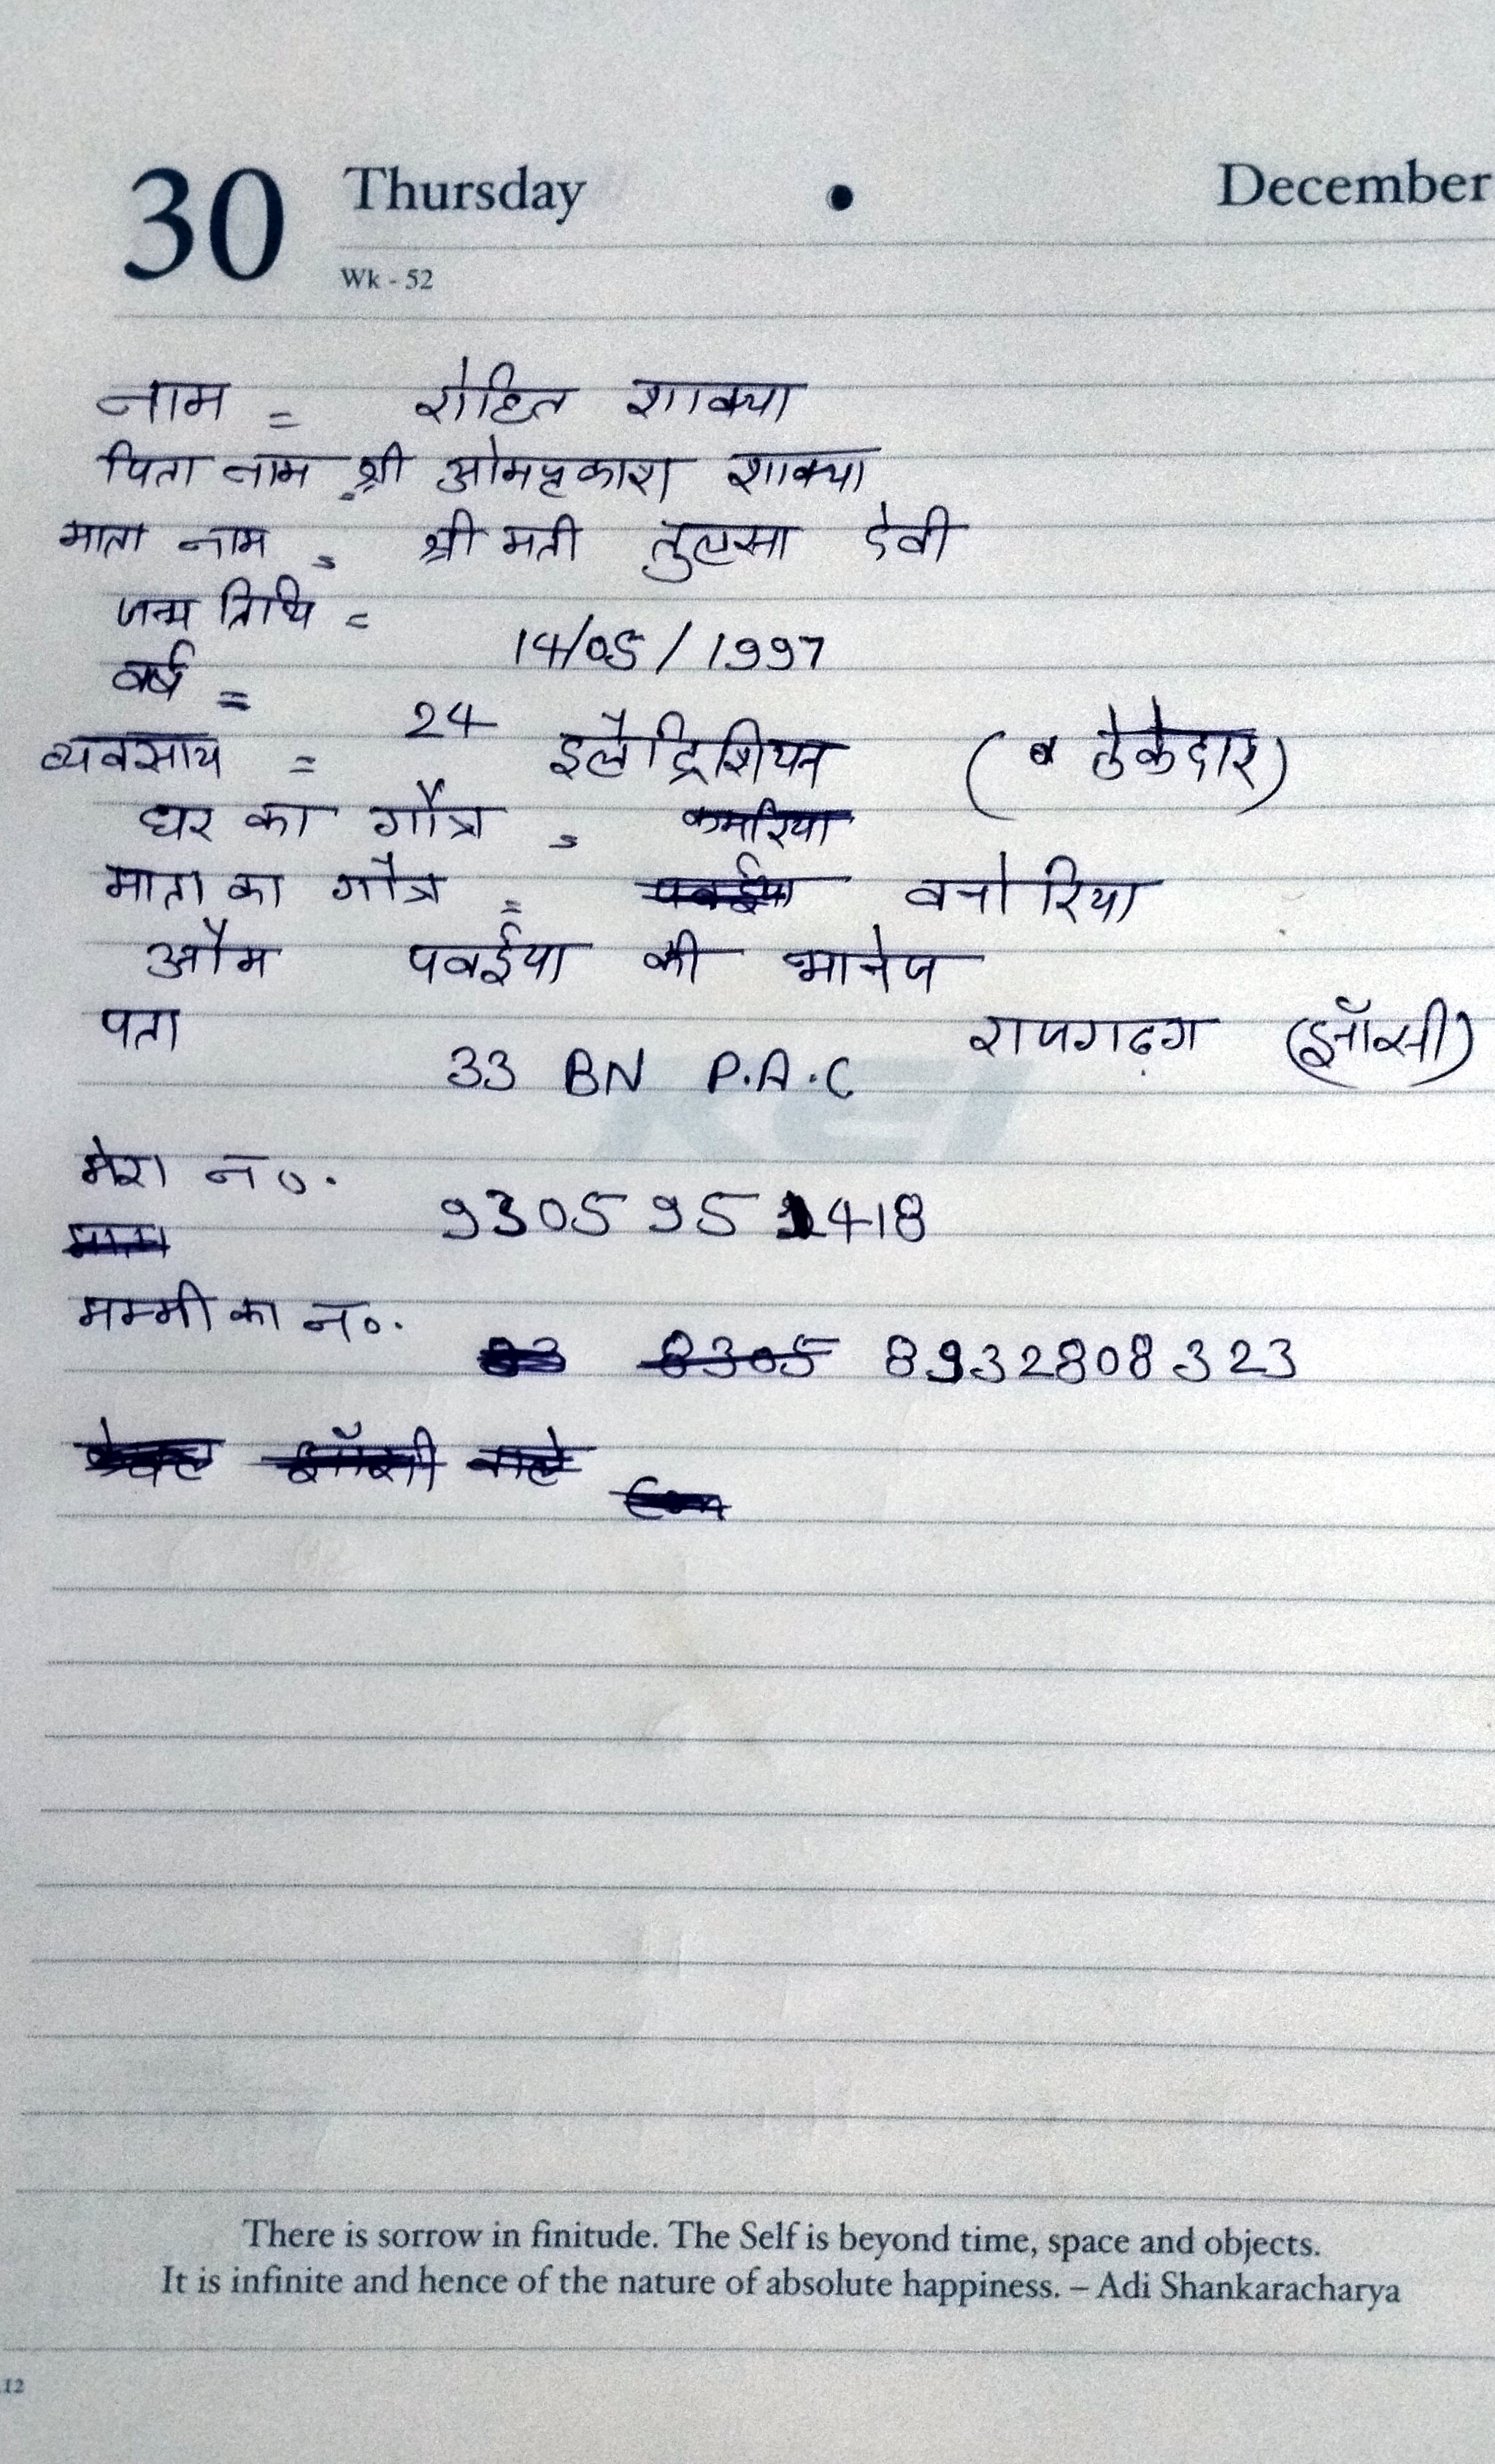 30 Thursday • December
Wk - 52
नाम = रोहित शाक्या
पिता नाम = श्री ओमप्रकाश शाक्या
माता नाम = श्री मती तुलसा देवी
जन्म तिथि = 14/05/1997
वर्ष = 24
व्यवसाय = इलैट्रिशियन (व ठेकेदार)
घर का गौत्र = कमरिया
माता का गौत्र = पवईया वनोरिया
औम पवईया की भानेज
पता 33 BN P.A.C राजगढ़ग (झॉसी)
KEI
मेरा न०. 9305 95 2418
माता
मम्मी का न०. 83 8305 8932808323
झॉसी वाले
There is sorrow in finitude. The Self is beyond time, space and objects.
It is infinite and hence of the nature of absolute happiness. – Adi Shankaracharya
12